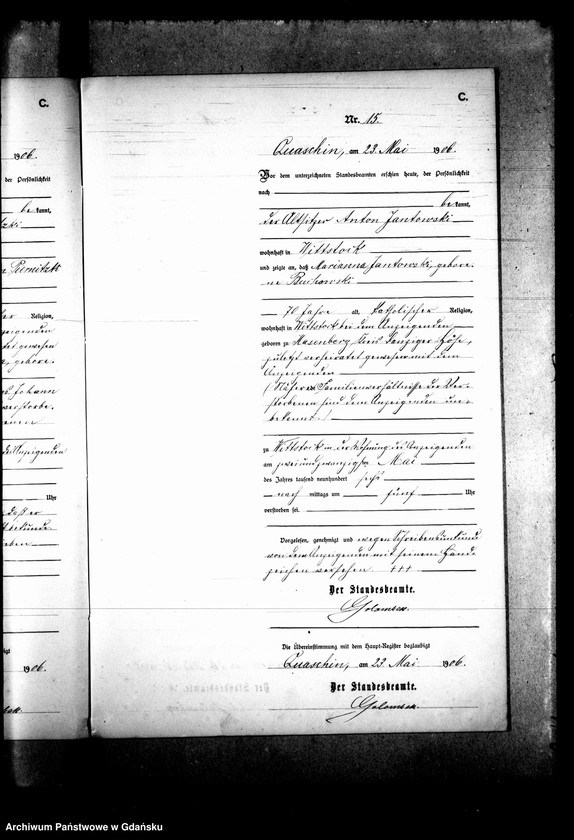 C.
06.
der Persönlichkeit
be kannt,
Religion,
nzeigenden
Johann
verstorbe.
nzeigenden
Uhr
06.
C.
Nr. 15.
Quaschin, am 23. Mai 1906.
Vor dem unterzeichneten Standesbeamten erschien heute, der Persönlichkeit
nach
be kannt,
der Altsitzer Anton Jantowski
wohnhaft in Wittstock
und zeigte an, daß Marianna Jantowski, gebore-
ne
70 Jahre alt, katholischer Religion,
wohnhaft in Wittstock bei dem Anzeigenden
geboren zu Kreis Danziger Höhe,
zuletzt verheiratet gewesen mit dem
Anzeigenden
(Nähere Familienverhältnisse der Ver-
storbenen sind dem Anzeigenden un-
bekannt.)
zu Wittstock in der Wohnung des Anzeigenden
am zweiundzwanzigsten Mai
des Jahres tausend neunhundert sechs
nach mittags um fünf Uhr
verstorben sei.
Vorgelesen, genehmigt und wegen Schreibensunkunde
von dem Anzeigenden mit seinem Hand-
zeichen versehen +++
Der Standesbeamte.
Die Übereinstimmung mit dem Haupt-Register beglaubigt
Quaschin, am 23. Mai 1906.
Der Standesbeamte.
Archiwum Państwowe w Gdańsku